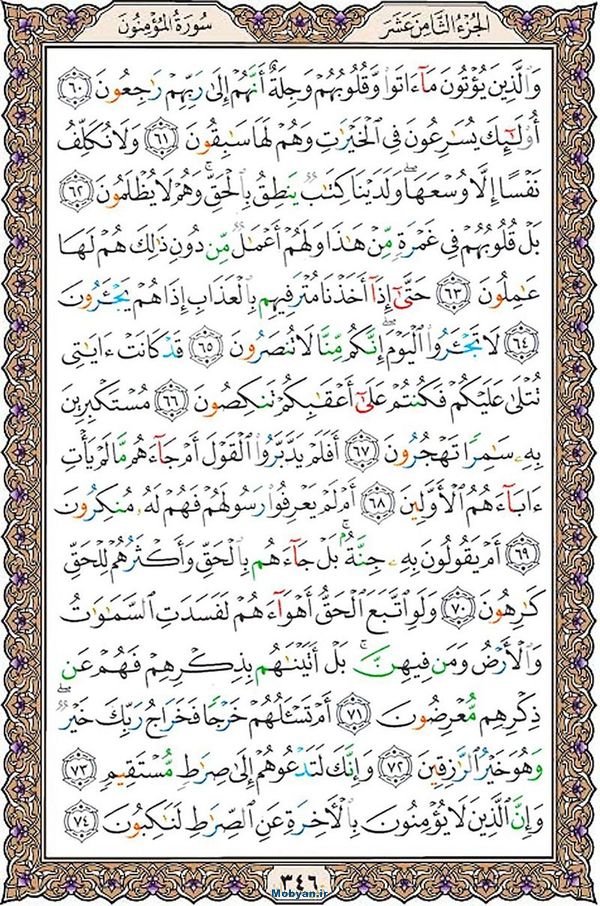 الجُزءُ الثَّامِن عَشَر
سُورَةُ المُؤۡمِنُون
وَٱلَّذِينَ يُؤۡتُونَ مَآ ءَاتَواْ وَّقُلُوبُهُمۡ وَجِلَةٌ أَنَّهُمۡ إِلَىٰ رَبِّهِمۡ رَٰجِعُونَ ٦٠
أُوْلَٰٓئِكَ يُسَٰرِعُونَ فِي ٱلۡخَيۡرَٰتِ وَهُمۡ لَهَا سَٰبِقُونَ ٦١ وَلَا نُكَلِّفُ
نَفۡسًا إِلَّا وُسۡعَهَاۖ وَلَدَيۡنَا كِتَٰبٞ يَنطِقُ بِٱلۡحَقِّ وَهُمۡ لَا يُظۡلَمُونَ ٦٢
بَلۡ قُلُوبُهُمۡ فِي غَمۡرَةٖ مِّنۡ هَٰذَا وَلَهُمۡ أَعۡمَٰلٞ مِّن دُونِ ذَٰلِكَ هُمۡ لَهَا
عَٰمِلُونَ ٦٣ حَتَّىٰٓ إِذَآ أَخَذۡنَا مُتۡرَفِيهِم بِٱلۡعَذَابِ إِذَا هُمۡ يَجۡـَٔرُونَ
٦٤ لَا تَجۡـَٔرُواْ ٱلۡيَوۡمَۖ إِنَّكُم مِّنَّا لَا تُنصَرُونَ ٦٥ قَدۡ كَانَتۡ ءَايَٰتِي
تُتۡلَىٰ عَلَيۡكُمۡ فَكُنتُمۡ عَلَىٰٓ أَعۡقَٰبِكُمۡ تَنكِصُونَ ٦٦ مُسۡتَكۡبِرِينَ
بِهِۦ سَٰمِرٗا تَهۡجُرُونَ ٦٧ أَفَلَمۡ يَدَّبَّرُواْ ٱلۡقَوۡلَ أَمۡ جَآءَهُم مَّا لَمۡ يَأۡتِ
ءَابَآءَهُمُ ٱلۡأَوَّلِينَ ٦٨ أَمۡ لَمۡ يَعۡرِفُواْ رَسُولَهُمۡ فَهُمۡ لَهُۥ مُنكِرُونَ
٦٩ أَمۡ يَقُولُونَ بِهِۦ جِنَّةُۢۚ بَلۡ جَآءَهُم بِٱلۡحَقِّ وَأَكۡثَرُهُمۡ لِلۡحَقِّ
كَٰرِهُونَ ٧٠ وَلَوِ ٱتَّبَعَ ٱلۡحَقُّ أَهۡوَآءَهُمۡ لَفَسَدَتِ ٱلسَّمَٰوَٰتُ
وَٱلۡأَرۡضُ وَمَن فِيهِنَّۚ بَلۡ أَتَيۡنَٰهُم بِذِكۡرِهِمۡ فَهُمۡ عَن
ذِكۡرِهِم مُّعۡرِضُونَ ٧١ أَمۡ تَسۡـَٔلُهُمۡ خَرۡجٗا فَخَرَاجُ رَبِّكَ خَيۡرٞۖ
وَهُوَ خَيۡرُ ٱلرَّٰزِقِينَ ٧٢ وَإِنَّكَ لَتَدۡعُوهُمۡ إِلَىٰ صِرَٰطٖ مُّسۡتَقِيمٖ ٧٣
وَإِنَّ ٱلَّذِينَ لَا يُؤۡمِنُونَ بِٱلۡأٓخِرَةِ عَنِ ٱلصِّرَٰطِ لَنَٰكِبُونَ ٧٤
٣٤٦
Mobyan.ir